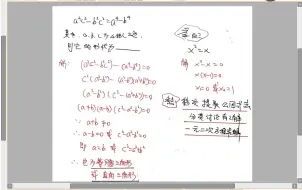 a²c²-b²c²=a⁴-b⁴
其中 a.b.c 为△ABC三边
则它的形状为
解: (a²c²-b²c²)-(a⁴-b⁴)=0
c²(a²-b²)-(a²-b²)(a²+b²)=0
(a²-b²)(c²-a²-b²)=0
(a+b)(a-b)(c²-a²-b²)=0
∵ a+b≠0
∴ a-b=0 或 c²-a²-b²=0
即 a=b 或 c²=a²+b²
∴ 它为等腰三角形
或 直角三角形
x²=x
解: x²-x=0
x(x-1)=0
x=0 或 x=1
提取公因式法
分类讨论
一元二次方程